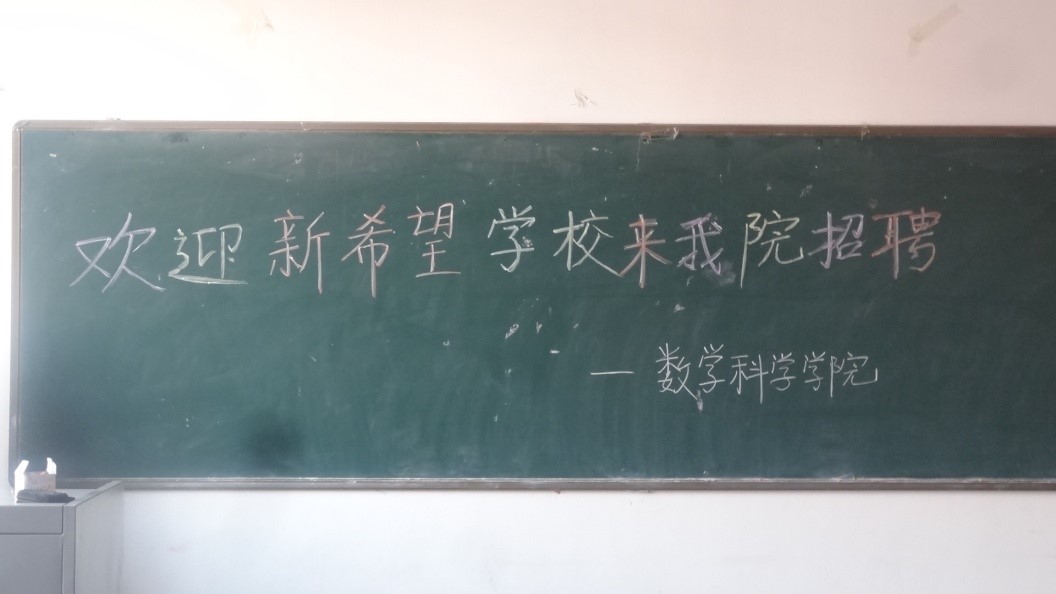 欢迎新希望学校来我院招聘
— 数学科学学院